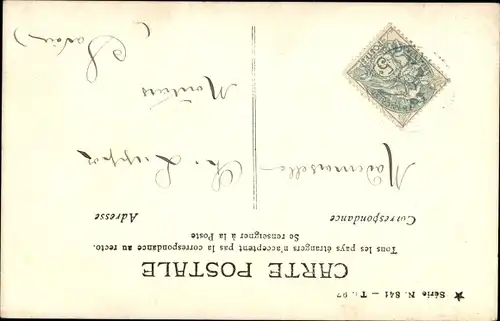 ★ Série N. 841 —
CARTE POSTALE
Tous les pays étrangers n'acceptent pas la correspondance au recto.
Se renseigner à la Poste
Correspondance
Adresse
Mademoiselle
Moutiers
(Savoie)